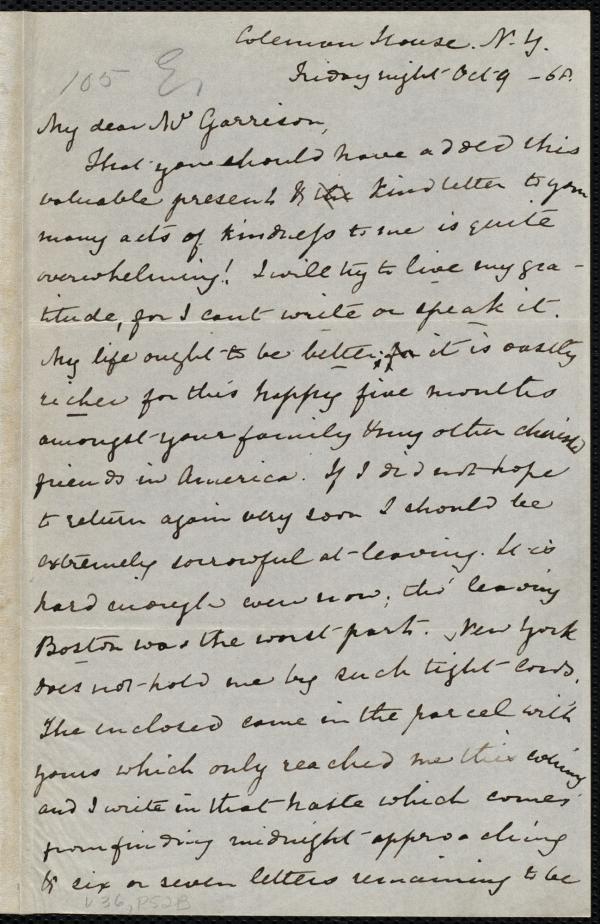 Coleman House. N.Y.
Friday night Oct 9 - 68.
105
My dear Mr Garrison,
That you should have added this
valuable present & the kind letter to your
many acts of kindness to me is quite
overwhelming! I will try to live my gra-
titude, for I cant write or speak it.
My life ought to be better; for it is vastly
richer for this happy five months
amongst your family & my other cherished
friends in America. If I did not hope
to return again very soon I should be
extremely sorrowful at leaving. It is
hard enough even now; tho' leaving
Boston was the worst part. New York
does not hold me by such tight cords.
The inclosed came in the parcel with
yours which only reached me this evening
and I write in that haste which comes
from finding midnight approaching
& six or seven letters remaining to be
V 36, P52B